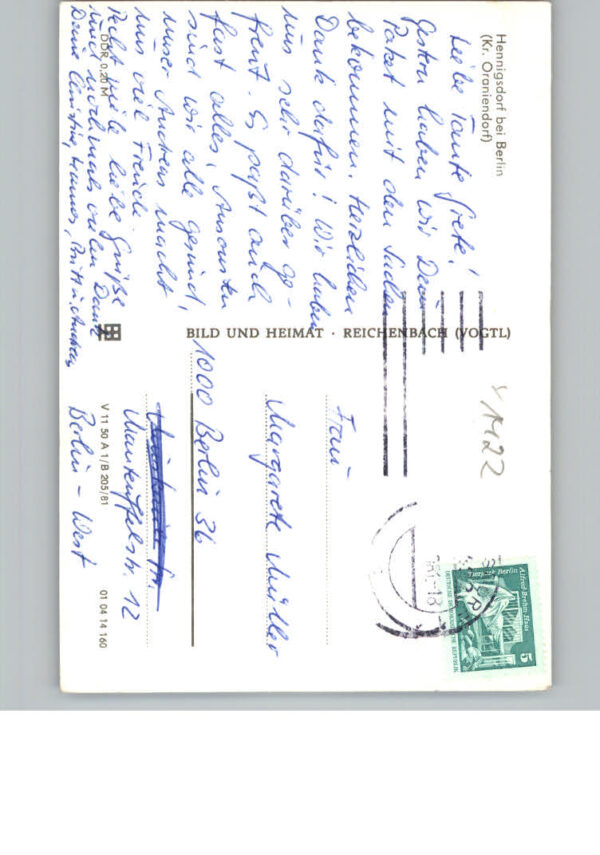 Hennigsdorf bei Berlin
(Kr. Oraniendorf)
Liebe Tante Grete!
Gestern haben wir Dein
Paket mit den Sachen
bekommen. Herzlichen
Dank dafür! Wir haben
uns sehr darüber ge-
freut. Es paßt auch
fast alles. Ansonsten
sind wir alle gesund,
unser Andreas macht
uns viel Freude.
Recht viele liebe Grüße
und nochmals vielen Dank
Deine Christine, Hannes, Britt u. Andreas
DDR 0,20 M
BILD UND HEIMAT · REICHENBACH (VOGTL)
V 11 50 A 1/B 205/81
01 04 14 160
V 1122
Frau
Margarete Müller
1000 Berlin 36
Manteuffelstr. 12
Berlin - West
Alfred-Brehm-Haus
Tierpark Berlin
DEUTSCHE DEMOKRATISCHE REPUBLIK
5